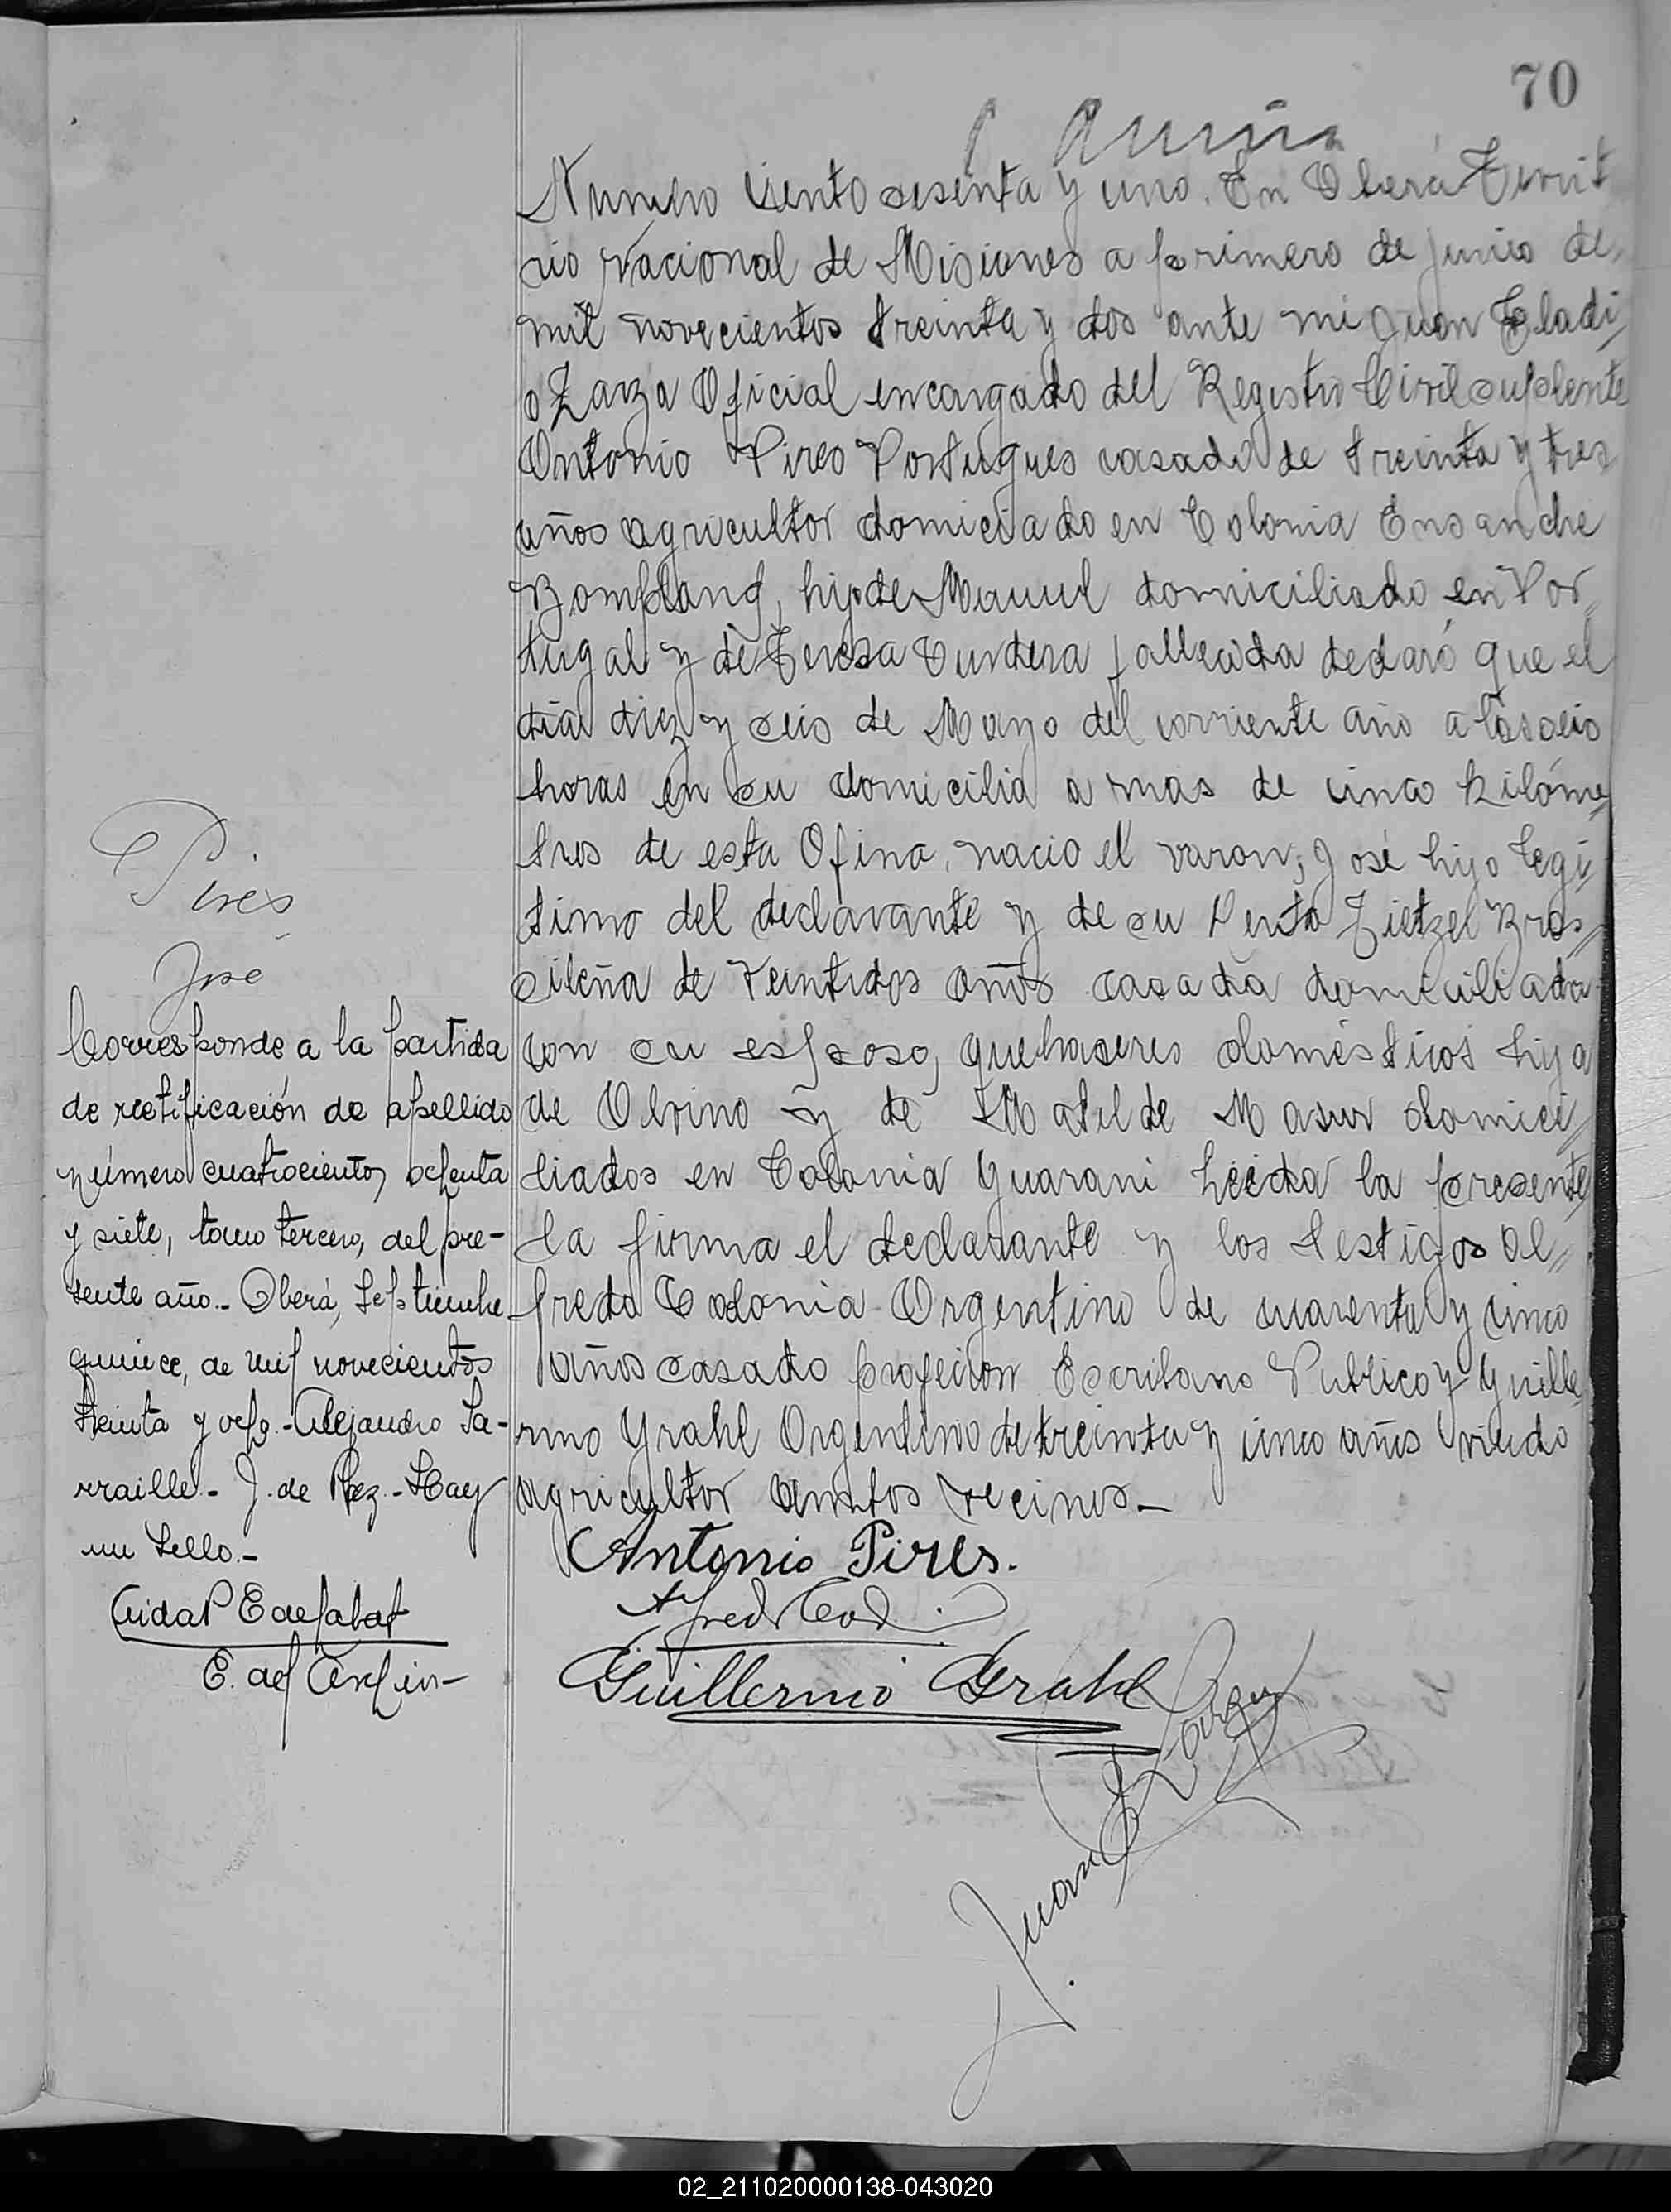 70
Numero ciento sesenta y uno. En Oberá Territ
rio Nacional de Misiones a primero de junio de
mil novecientos treinta y dos ante mi Juan Eladi
o Zarza Oficial encargado del Registro Civil suplente
Antonio Pires Portugues casado de treinta y tres
años agricultor domiciado en Colonia Ensanche
Bompland, hijo de Manuel domiciliado en Por
tugal y de Teresa fallecida declaró que el
dia diez y seis de Mayo del corriente año a las seis
horas en su domicilio a mas de cinco kilóme
tros de esta Ofina, nacio el varon, José hijo legi
timo del declarante y de su Berta Zietzel Bras
sileña de veintidos años casada domiciliada
con su esposo, quehaseres domésticos hija
de Olvino y de Matilde Masur domici
liados en Colonia Guarani Leida la presente
la firma el declarante y los testigos Al
fredo Codonia Argentino de cuarenta y cinco
años casado profecion Escribano Publico y Guille
rmo Grahl Argentino de treinta y cinco años viudo
agricultor ambos vecinos.-
Antonio Pires.
Guillermo Grahl
Juan E Zarza
Pires
José
Corresponde a la partida
de rectificación de apellido
número cuatrocientos ochenta
y siete, tomo tercero, del pre-
sente año.- Oberá, Septiembre
quince, de mil novecientos
treinta y ocho.- Alejandro La-
rraille.- J. de Paz.- Hay
un Sello.-
02_211020000138-043020